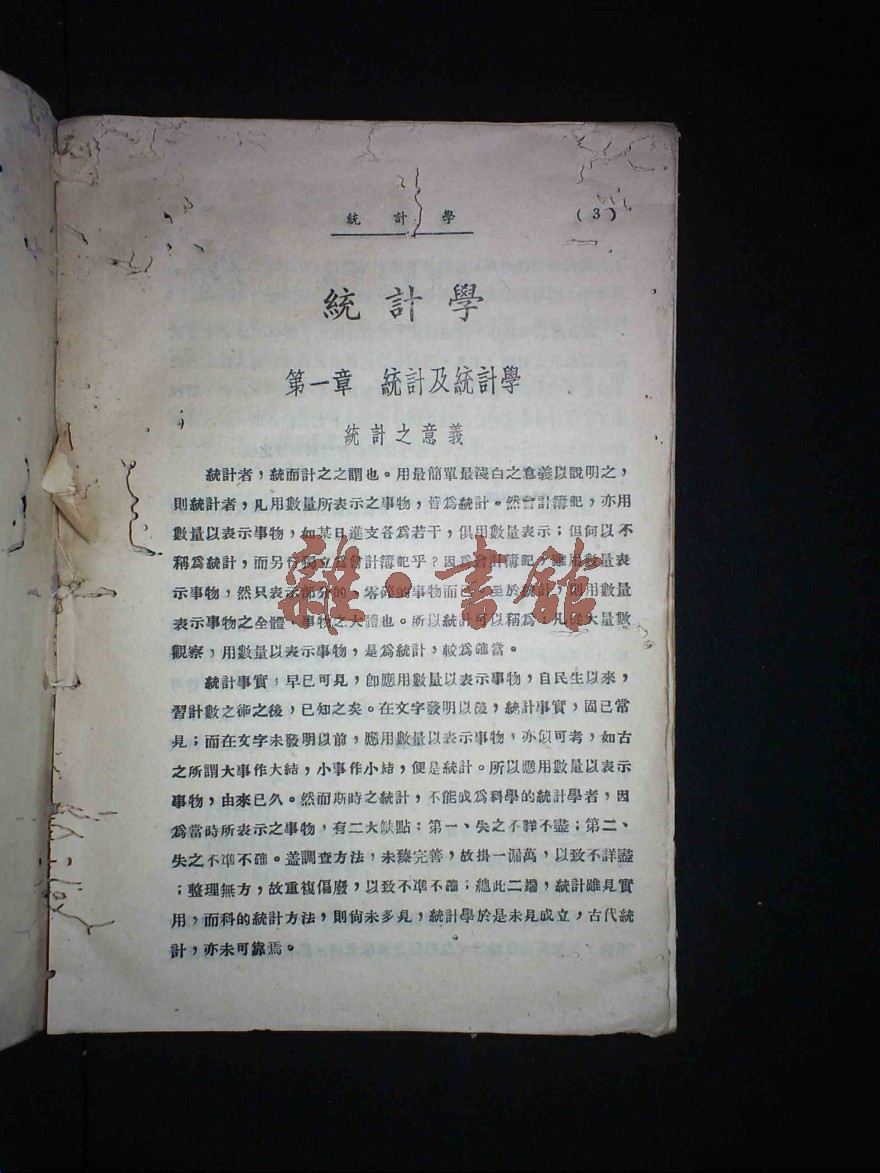 統計學
(3)
統計學
第一章 統計及統計學
統計之意義
統計者，統而計之之謂也。用最簡單最淺白之意義以說明之，
則統計者，凡用數量所表示之事物，皆為統計。然會計簿記，亦用
數量以表示事物，如某日進支各為若干，俱用數量表示；但何以不
稱為統計，而另行獨立為會計簿記乎？因為會計簿記，雖用數量表
示事物，然只表示部分的、零碎的事物而已。至於統計，則用數量
表示事物之全體、事物之大體也。所以統計可以稱為：凡從大量數
觀察，用數量以表示事物，是為統計，較為確當。
統計事實，早已可見，卽應用數量以表示事物，自民生以來，
習計數之術之後，已知之矣。在文字發明以後，統計事實，固已常
見；而在文字未發明以前，應用數量以表示事物，亦似可考，如古
之所謂大事作大結，小事作小結，便是統計。所以應用數量以表示
事物，由來已久。然而斯時之統計，不能成為科學的統計學者，因
為當時所表示之事物，有二大缺點：第一、失之不詳不盡；第二、
失之不準不確。蓋調查方法，未臻完善，故掛一漏萬，以致不詳盡
；整理無方，故重複偏廢，以致不準不確；總此二端，統計雖見實
用，而科的統計方法，則尙未多見，統計學於是未見成立，古代統
計，亦未可靠焉。
雜·書館